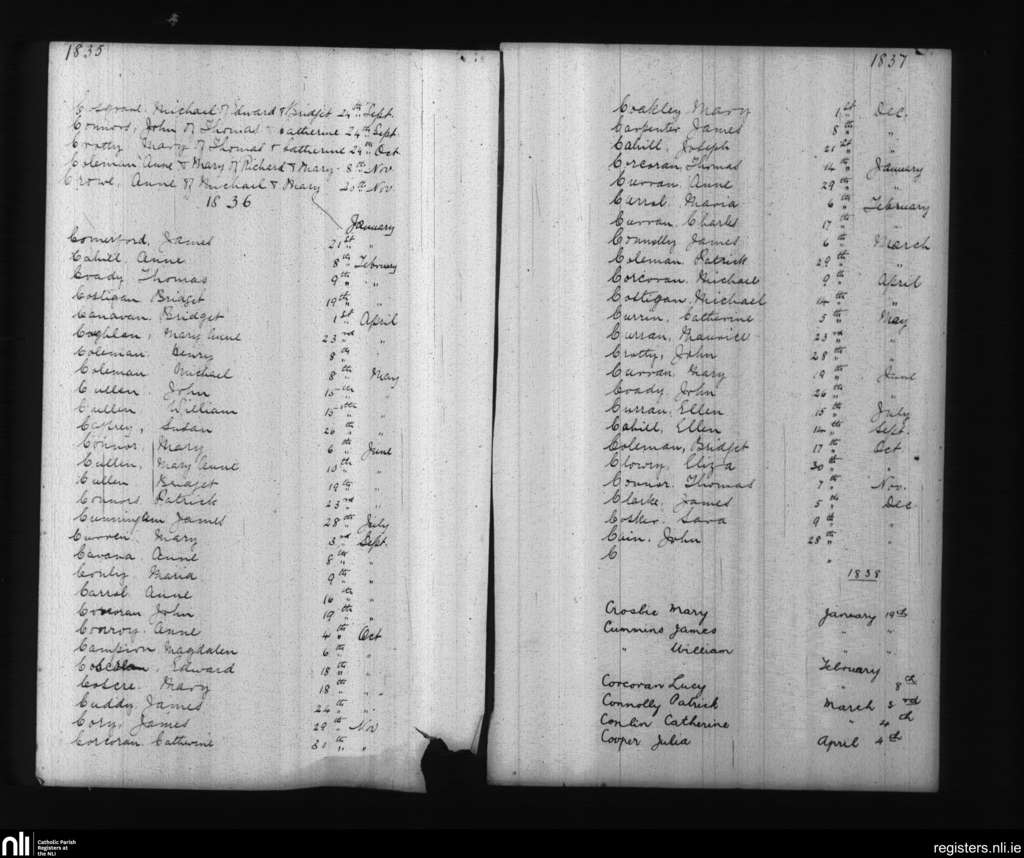 1835
Cosgrave, Michael of Edward & Bridget 24th Sept.
Connors, John of Thomas & Catherine 24th Sept
Crotty Mary of Thomas & Catherine 29th Oct
Coleman Anne & Mary of Richard & Mary 8th Nov
Crowe, Anne of Michael & Mary 20th Nov
1836
January
Comerford, James 21st "
Cahill Anne 8th February
Coady Thomas 9th "
Costigan Bridget 19th "
Canavan, Bridget 1st April
Coghlan, Mary Anne 23rd "
Coleman Henry 8th "
Coleman Michael 8th May
Cullen John 15th "
Cullen William 15th "
Caffrey, Susan 26th "
Connor, Mary 6th June
Cullen, Mary Anne 10th "
Cullen Bridget 19th "
Connors Patrick 23rd "
Cunningham James 28th July
Curren Mary 3rd Sept.
Cavana Anne 8th "
Conly Maria 9th "
Carrol Anne 16th "
Corcoran John 19th "
Conroy Anne 4th Oct
Campion Magdalen 6th "
Edward 18th "
Mary 18th "
Cuddy, James 24th "
Cory, James 29th Nov
Corcoran, Catherine 31th "
1837
Coakley Mary 1st Dec.
Carpenter James 8th "
Cahill, Joseph 21st "
Corcoran, Thomas 14th January
Curran Anne 29th "
Carrol Maria 6th February
Curran, Charles 17th "
Connolly James 6th March
Coleman Patrick 29th "
Corcoran Michael 9th April
Costigan, Michael 14th "
Currin, Catherine 5th May
Curran, Maurice 23rd "
Crotty, John 28th "
Curran, Mary 19th June
Coady John 26th "
Curran, Ellen 15th July
Cahill, Ellen 14th Sept.
Coleman, Bridget 17th Oct
Clowry, Eliza 30th "
Connor, Thomas 7th Nov.
Clarke, James 5th Dec
Cosker Sara 9th "
Cain, John 28th "
C "
1838
Crosbie Mary January 19th
Cummins James " "
" William " "
February
Corcoran Lucy " 8th
Connolly Patrick March 3rd
Conlin Catherine " 4th
Cooper Julia April 4th
nli
Catholic Parish
Registers at
the NLI
registers.nli.ie